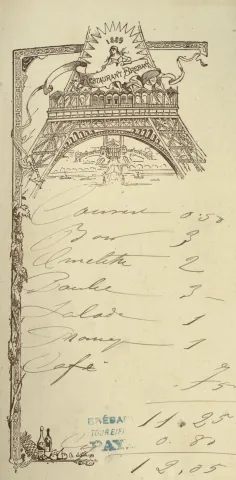 1889
RESTAURANT BRÉBANT
Couvert 0.50
Bon 3
Omelette 2
3 -
Salade 1
1
Café 75
11.25
BRÉBANT
TOUR EIFFEL
PAYÉ
0.80
12.05